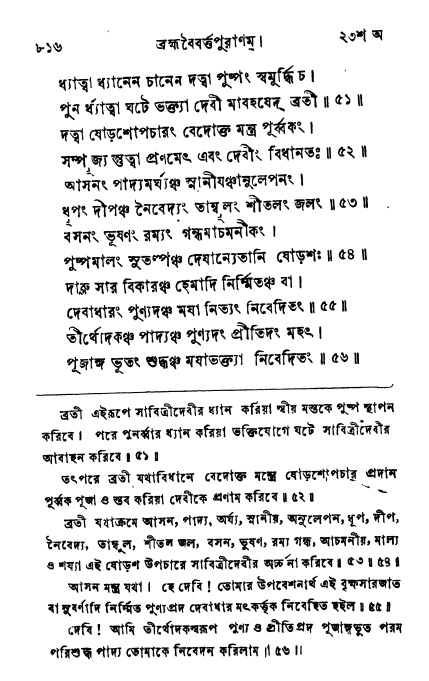 ৮১৬ ব্রহ্মবৈবর্ত্তপুরাণম্। ২৩শ অ
ধ্যাত্বা ধ্যানেন চানেন দত্বা পুষ্পং স্বমূর্দ্ধি চ।
পুন র্ধ্যাত্বা ঘটে ভক্ত্যা দেবী মাবহয়েদ্ ব্রতী॥ ৫১॥
দত্বা ষোড়শোপচারং বেদোক্ত মন্ত্র পূর্ব্বকং।
সম্পূজ্য স্তুত্বা প্রণমেৎ এবং দেবীং বিধানতঃ॥ ৫২॥
আসনং পাদ্যমর্ঘ্যঞ্চ স্নানীয়ঞ্চানুলেপনং।
ধূপং দীপঞ্চ নৈবেদ্যং তাম্বূলং শীতলং জলং॥ ৫৩॥
বসনং ভূষণং রম্যং গন্ধমাচমনীকং।
পুষ্পমালং সুতল্পঞ্চ দেয়ান্যেতানি ষোড়শঃ॥ ৫৪॥
দারু সার বিকারঞ্চ হেমাদি নির্ম্মিতঞ্চ বা।
দেবাধারং পুণ্যদঞ্চ ময়া নিত্যং নিবেদিতং॥ ৫৫॥
তীর্থোদকঞ্চ পাদ্যঞ্চ পুণ্যদং প্রীতিদং মহৎ।
পূজাঙ্গ ভূতং শুদ্ধঞ্চ ময়াভক্ত্যা নিবেদিতং॥ ৫৬॥
ব্রতী এইরূপে সাবিত্রীদেবীর ধ্যান করিয়া স্বীয় মস্তকে পুষ্প স্থাপন
করিবে। পরে পুনর্ব্বার ধ্যান করিয়া ভক্তিযোগে ঘটে সাবিত্রীদেবীর
আবাহন করিবে॥ ৫১॥
তৎপরে ব্রতী যথাবিধানে বেদোক্ত মন্ত্রে ষোড়শোপচার প্রদান
পূর্ব্বক পূজা ও স্তব করিয়া দেবীকে প্রণাম করিবে॥ ৫২॥
ব্রতী যথাক্রমে আসন, পাদ্য, অর্ঘ্য, স্নানীয়, অনুলেপন, ধূপ, দীপ,
নৈবেদ্য, তাম্বূল, শীতল জল, বসন, ভূষণ, রম্য গন্ধ, আচমনীয়, মাল্য
ও শয্যা এই ষোড়শ উপচারে সাবিত্রীদেবীর অর্চ্চনা করিবে॥ ৫৩॥ ৫৪॥
আসন মন্ত্র যথা। হে দেবি! তোমার উপবেশনার্থ এই বৃক্ষসারজাত
বা সুবর্ণাদি নির্ম্মিত পুণ্যপ্রদ দেবাধার মৎকর্ত্তৃক নিবেদিত হইল॥ ৫৫॥
দেবি! আমি তীর্থোদকস্বরূপ পুণ্য ও প্রীতিপ্রদ পূজাঙ্গভূত পরম
পরিশুদ্ধ পাদ্য তোমাকে নিবেদন করিলাম॥ ৫৬॥